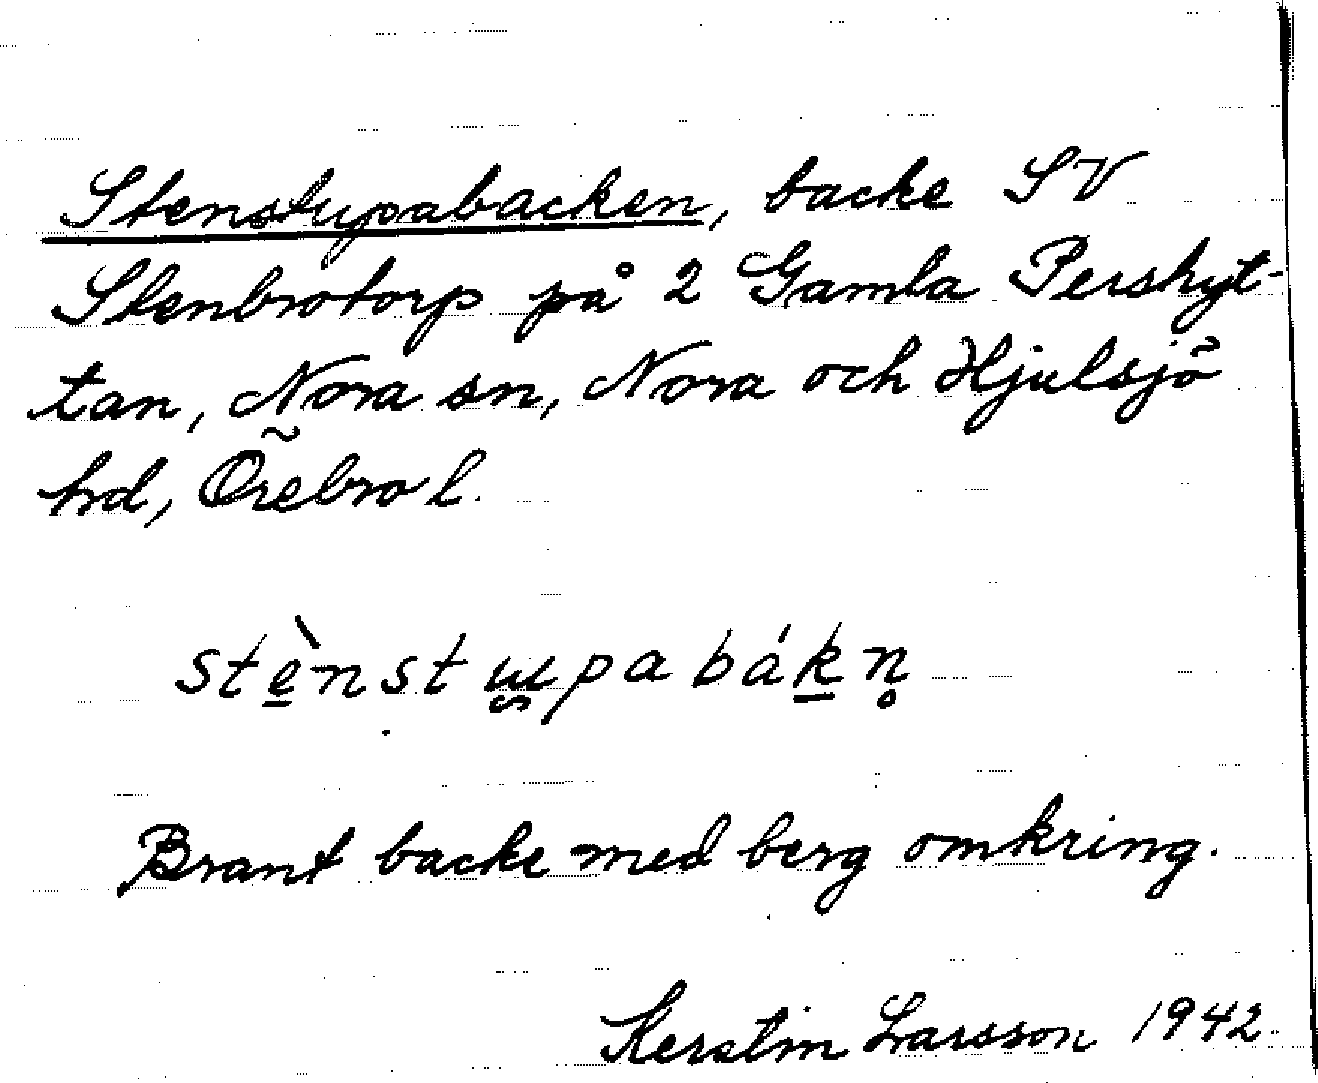 Stenstupabacken, backe SV
Stenbrotorp på 2 Gamla Pershyt-
tan, Nora sn, Nora och Hjulsjö
hrd, Örebro l.
stènstupabákn̥
Brant backe med berg omkring.
Kerstin Larsson 1942